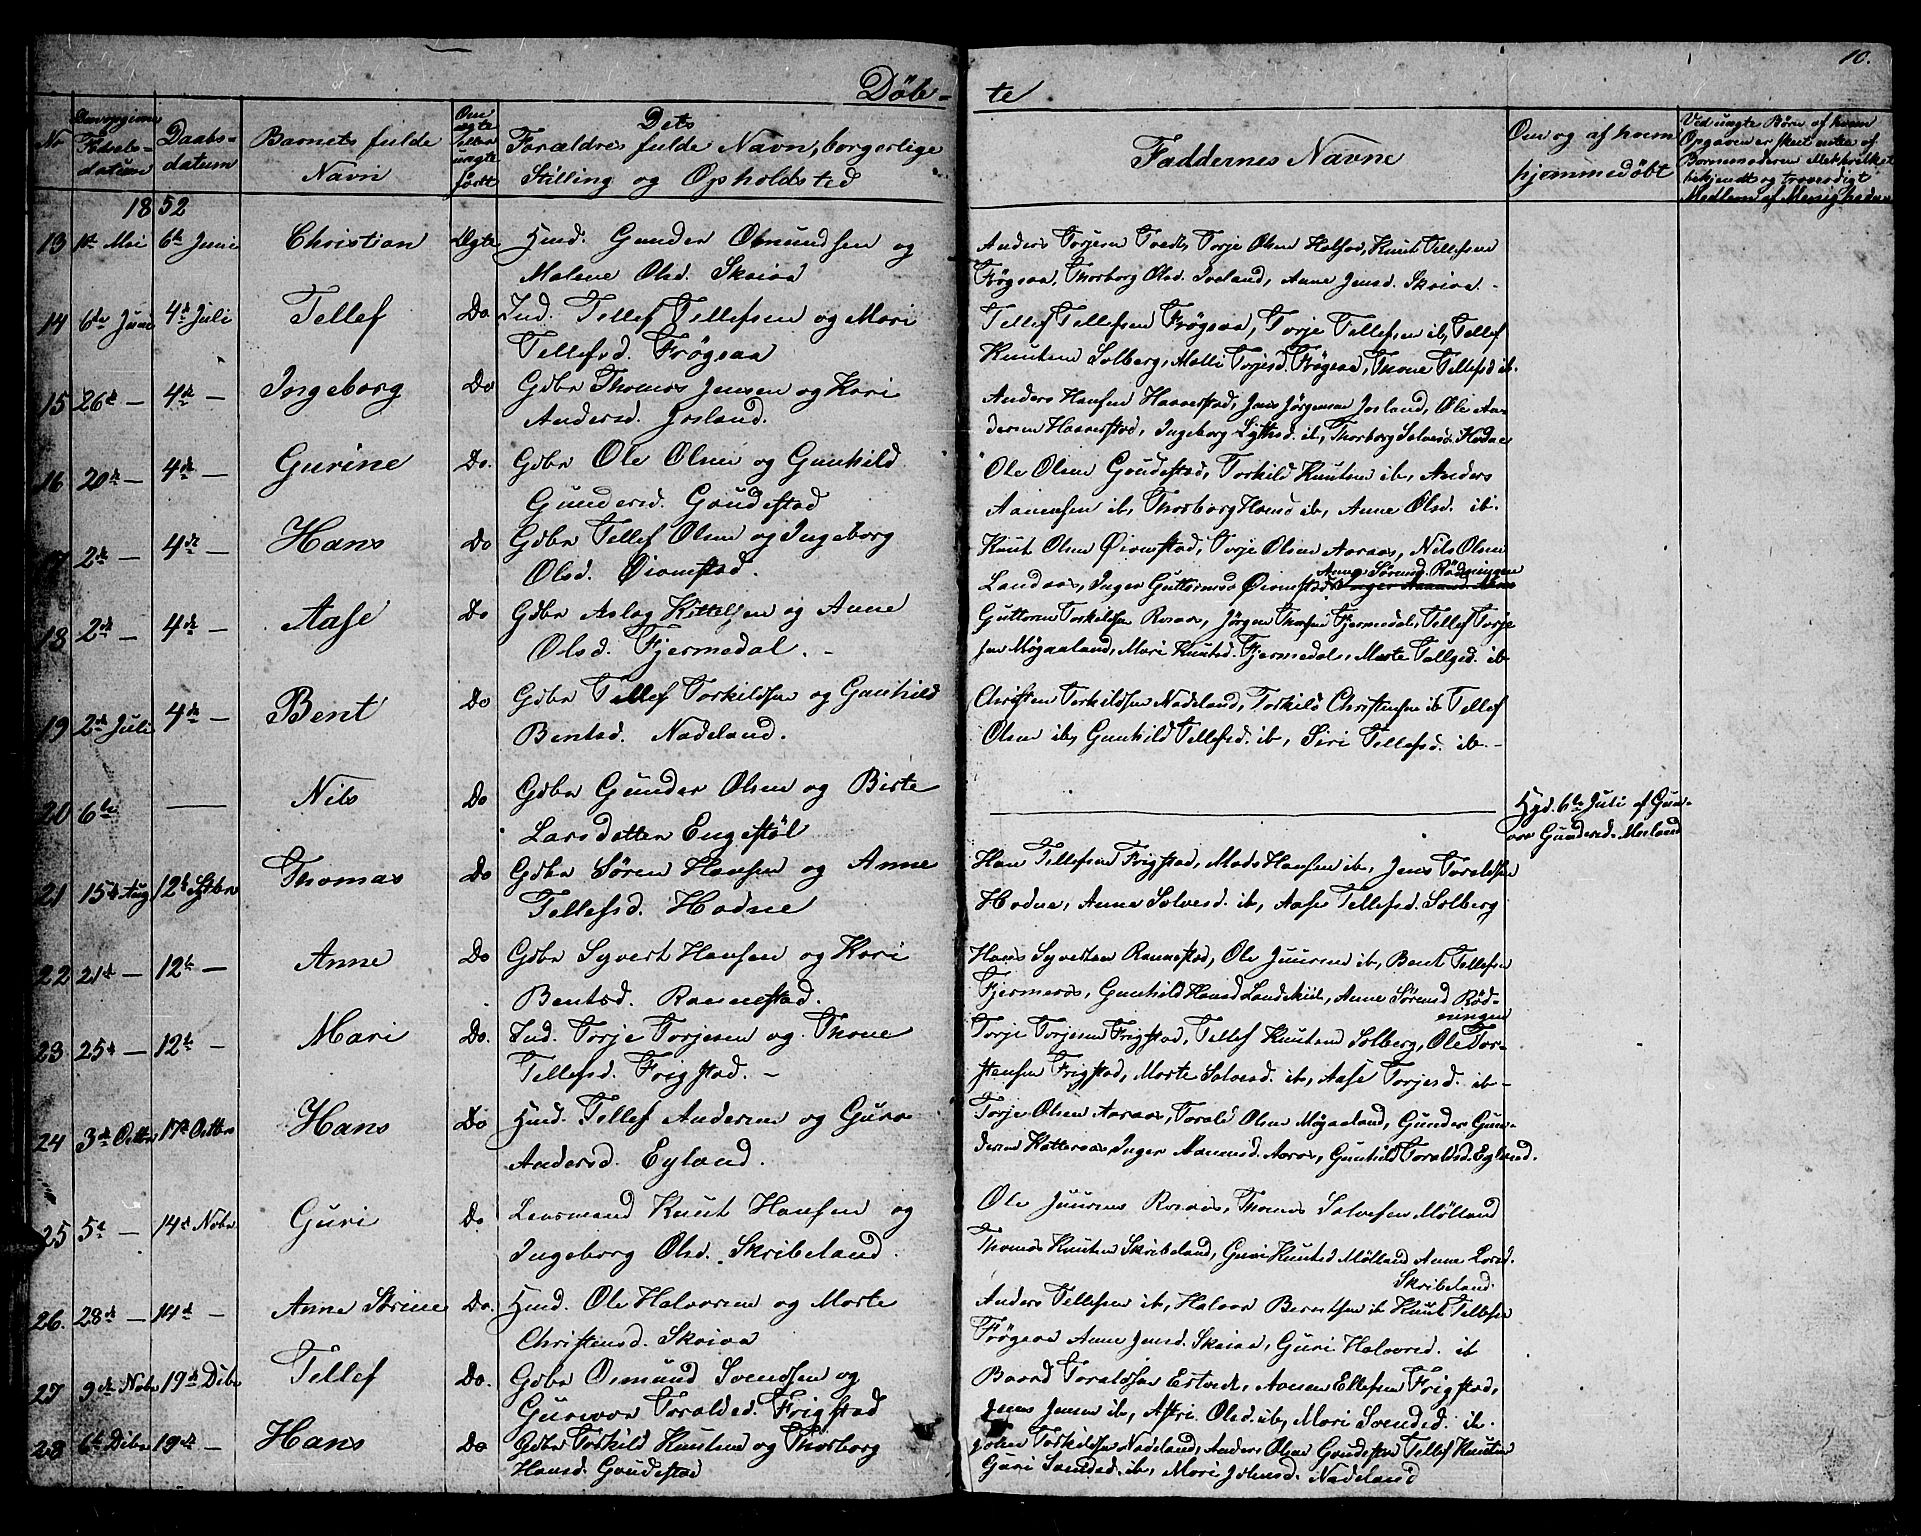 10.
Döb- te
No
Fødsels-
datum
Daabs-
datum
Barnets fulde
Navn
Om
ægte
eller
uægte
født
Dets
Forældres fulde Navn, borgerlige
Stilling og Opholdsted
Faddernes Navne
Om og af hvem
hjemmedöbt
Ved uægte Börn af hvem
Medlem af Menigheden
1852
13 1st Mai 6te Juni Christian Ægte Huusmd. Gunder Osmundsen og
Malene Olsd. Skaiaa
Anders Torjesen Tvedt, Torje Olsen Holsos, Knut Tellefsen
Frøgsaa, Thorborg Olsd. Iveland, Anne Jensd. Skaiaa.
14 6te Juni 4de Juli Tellef Do Ind. Tellef Tellefsen og Mari
Tellefsd. Frøgsaa
Tellef Tellefsen Frøgsaa, Torje Tellefsen ib, Tellef
Knutsen Solberg, Malli Torjesd. Frøgsaa, Thone Tellefsd ib.
15 26de — 4de — Ingeborg Do Gdbr Thomas Jensen og Kari
Andersd. Josland.
Anders Hansen Haaverstad, Jens Jörgensen Josland, Ole An-
dersen Haaverstad, Ingeborg ib, Thorborg Salvesd. Hodne
16 20de — 4de — Gurine Do. Gdbr Ole Olsen og Gunhild
Gundersd. Goudestad
Ole Olsen Goudestad, Torkild Knutsen ib, Anders
Aanensen ib, Thorborg Hansd ib, Anne Olsd. ib.
17 2de — 4de — Hans Do Gdbr Tellef Olsen og Ingeborg
Olsd. Øvomstad.
Knut Olsen Øvomstad, Torje Olsen Aaraas, Nils Olsen
Anne Sørensd. Rødningen
Landaas, Inger Guttormsd Øvomstad
18 2de — 4de — Aase Do Gdbr Aslag Kittelsen og Anne
Olsd. Fjermedal. -
Guttorm Torkildsen Rosaas, Jörgen Fjermedal, Tellef Torje
sen Møgaaland, Mari Knutsd. Fjermedal, Marte Tallgsd. ib
19 2de Juli 4de — Bent Do Gdbr Tellef Torkildsen og Gunhild
Bentsd. Nadeland.
Christen Torkildsen Nadeland, Torkild Christensen ib Tellef
Olsen ib, Gunhild Tellefsd. ib, Siri Tellefsd. ib -
20 6te — Nils Do Gdbr Gunder Olsen og Birte
Larsdatter Engestöl
Hjd. 6te Juli af Gun-
vor Gundersd. Mosland
21 15de Aug 12te Septbr Thomas Do Gdbr Sören Hansen og Anne
Tellefsd. Hodne
Hans Tellefsen Frigstad, Mads Hansen ib, Jens Toraldsen
Hodne, Anne Salvesd. ib, Aase Tellefsd. Solberg
22 21de — 12te — Anne Do Gdbr Syvert Hansen og Kari
Bentsd. Rannestad.
Hans Syvertsen Rannestad, Ole Juursen ib, Bent Tellefsen
Fjermeros, Gunhild Hansd Landskiil, Anne Sørensd Röd-
ningen
23 25de — 12te — Mari Do. Ind. Torje Torjesen og Thone
Tellefsd. Frigstad. -
Torje Torjesen Frigstad, Tellef Knutsen Solberg, Ole Tor-
stensen Frigstad, Marte Salvesd. ib, Aase Torjesd. ib -
24 3de Octbr 17de Octbr Hans Do Huusmd. Tellef Andersen og Guro
Andersd. Eyland.
Torje Olsen Aaraas, Torald Olsen Møgaaland, Gunder Gun-
dersen Katteraas, Inger Aanensd. Aaraas, Gunhild Toraldsd. Eyland.
25 5te — 14de Nobr Guri Do Lensmand Knut Hansen og
Ingeborg Olsd. Skribeland.
Ole Juursen Rosaas, Thomas Salvesen Mölland
Thomas Knutsen Skribeland, Guri Knutsd Mölland Anne Larsd.
Skribeland.
26. 28de — 14de — Anne Sørine Do. Huusmd. Ole Halvorsen og Marte
Christensd. Skaiaa
Anders Tellefsen ib, Halvor Berntsen ib Knut Tellefsen
Frøgsaa Anne Jensd. Skaiaa, Guri Halvorsd. ib
27 9de Nobr 19de Dcbr Tellef Do. Gdbr Osmund Svendsen og
Gunvor Toraldsd. Frigstad
Baard Toraldsen Estvedt, Aanen Ellefsen Frigstad,
Jens Jensen ib, Astri Olsd. ib, Mari Svendsd. ib.
28 6te Dcbr 19de — Hans Do Gdbr Torkild Knutsen og Thorborg
Hansd. Goudestad
John Torkildsen Nadeland, Anders Olsen Goudestad Tellef Knutsen
Guri Svendsd. ib, Mari Johnsd. Nadeland